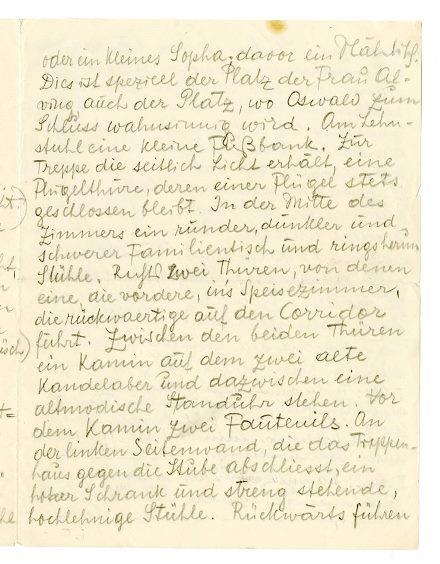 oder ein kleines Sopha, davor ein Nähtisch.
Dies ist speziel der Platz der Frau Al-
ving auch der Platz, wo Oswald zum
Schluss wahnsinnig wird. Am Lehn-
stuhl eine kleine Fußbank. Zur
Treppe die seitlich Licht erhält, eine
Flügelthüre, deren einer Flügel stets
geschlossen bleibt. In der Mitte des
Zimmers ein runder, dunkler und
schwerer Familientisch und ringsherum
Stühle. Rechts zwei Thüren, von denen
eine, die vordere, in's Speisezimmer,
die rückwaertige auf den Corridor
führt. Zwischen den beiden Thüren
ein Kamin auf dem zwei alte
Kandelaber und dazwischen eine
altmodische Standuhr stehen. Vor
dem Kamin zwei Fauteuils. An
der linken Seitenwand, die das Treppen-
haus gegen die Stube abschliesst, ein
hoher Schrank und streng stehende,
hochlehnige Stühle. Rückwärts führen